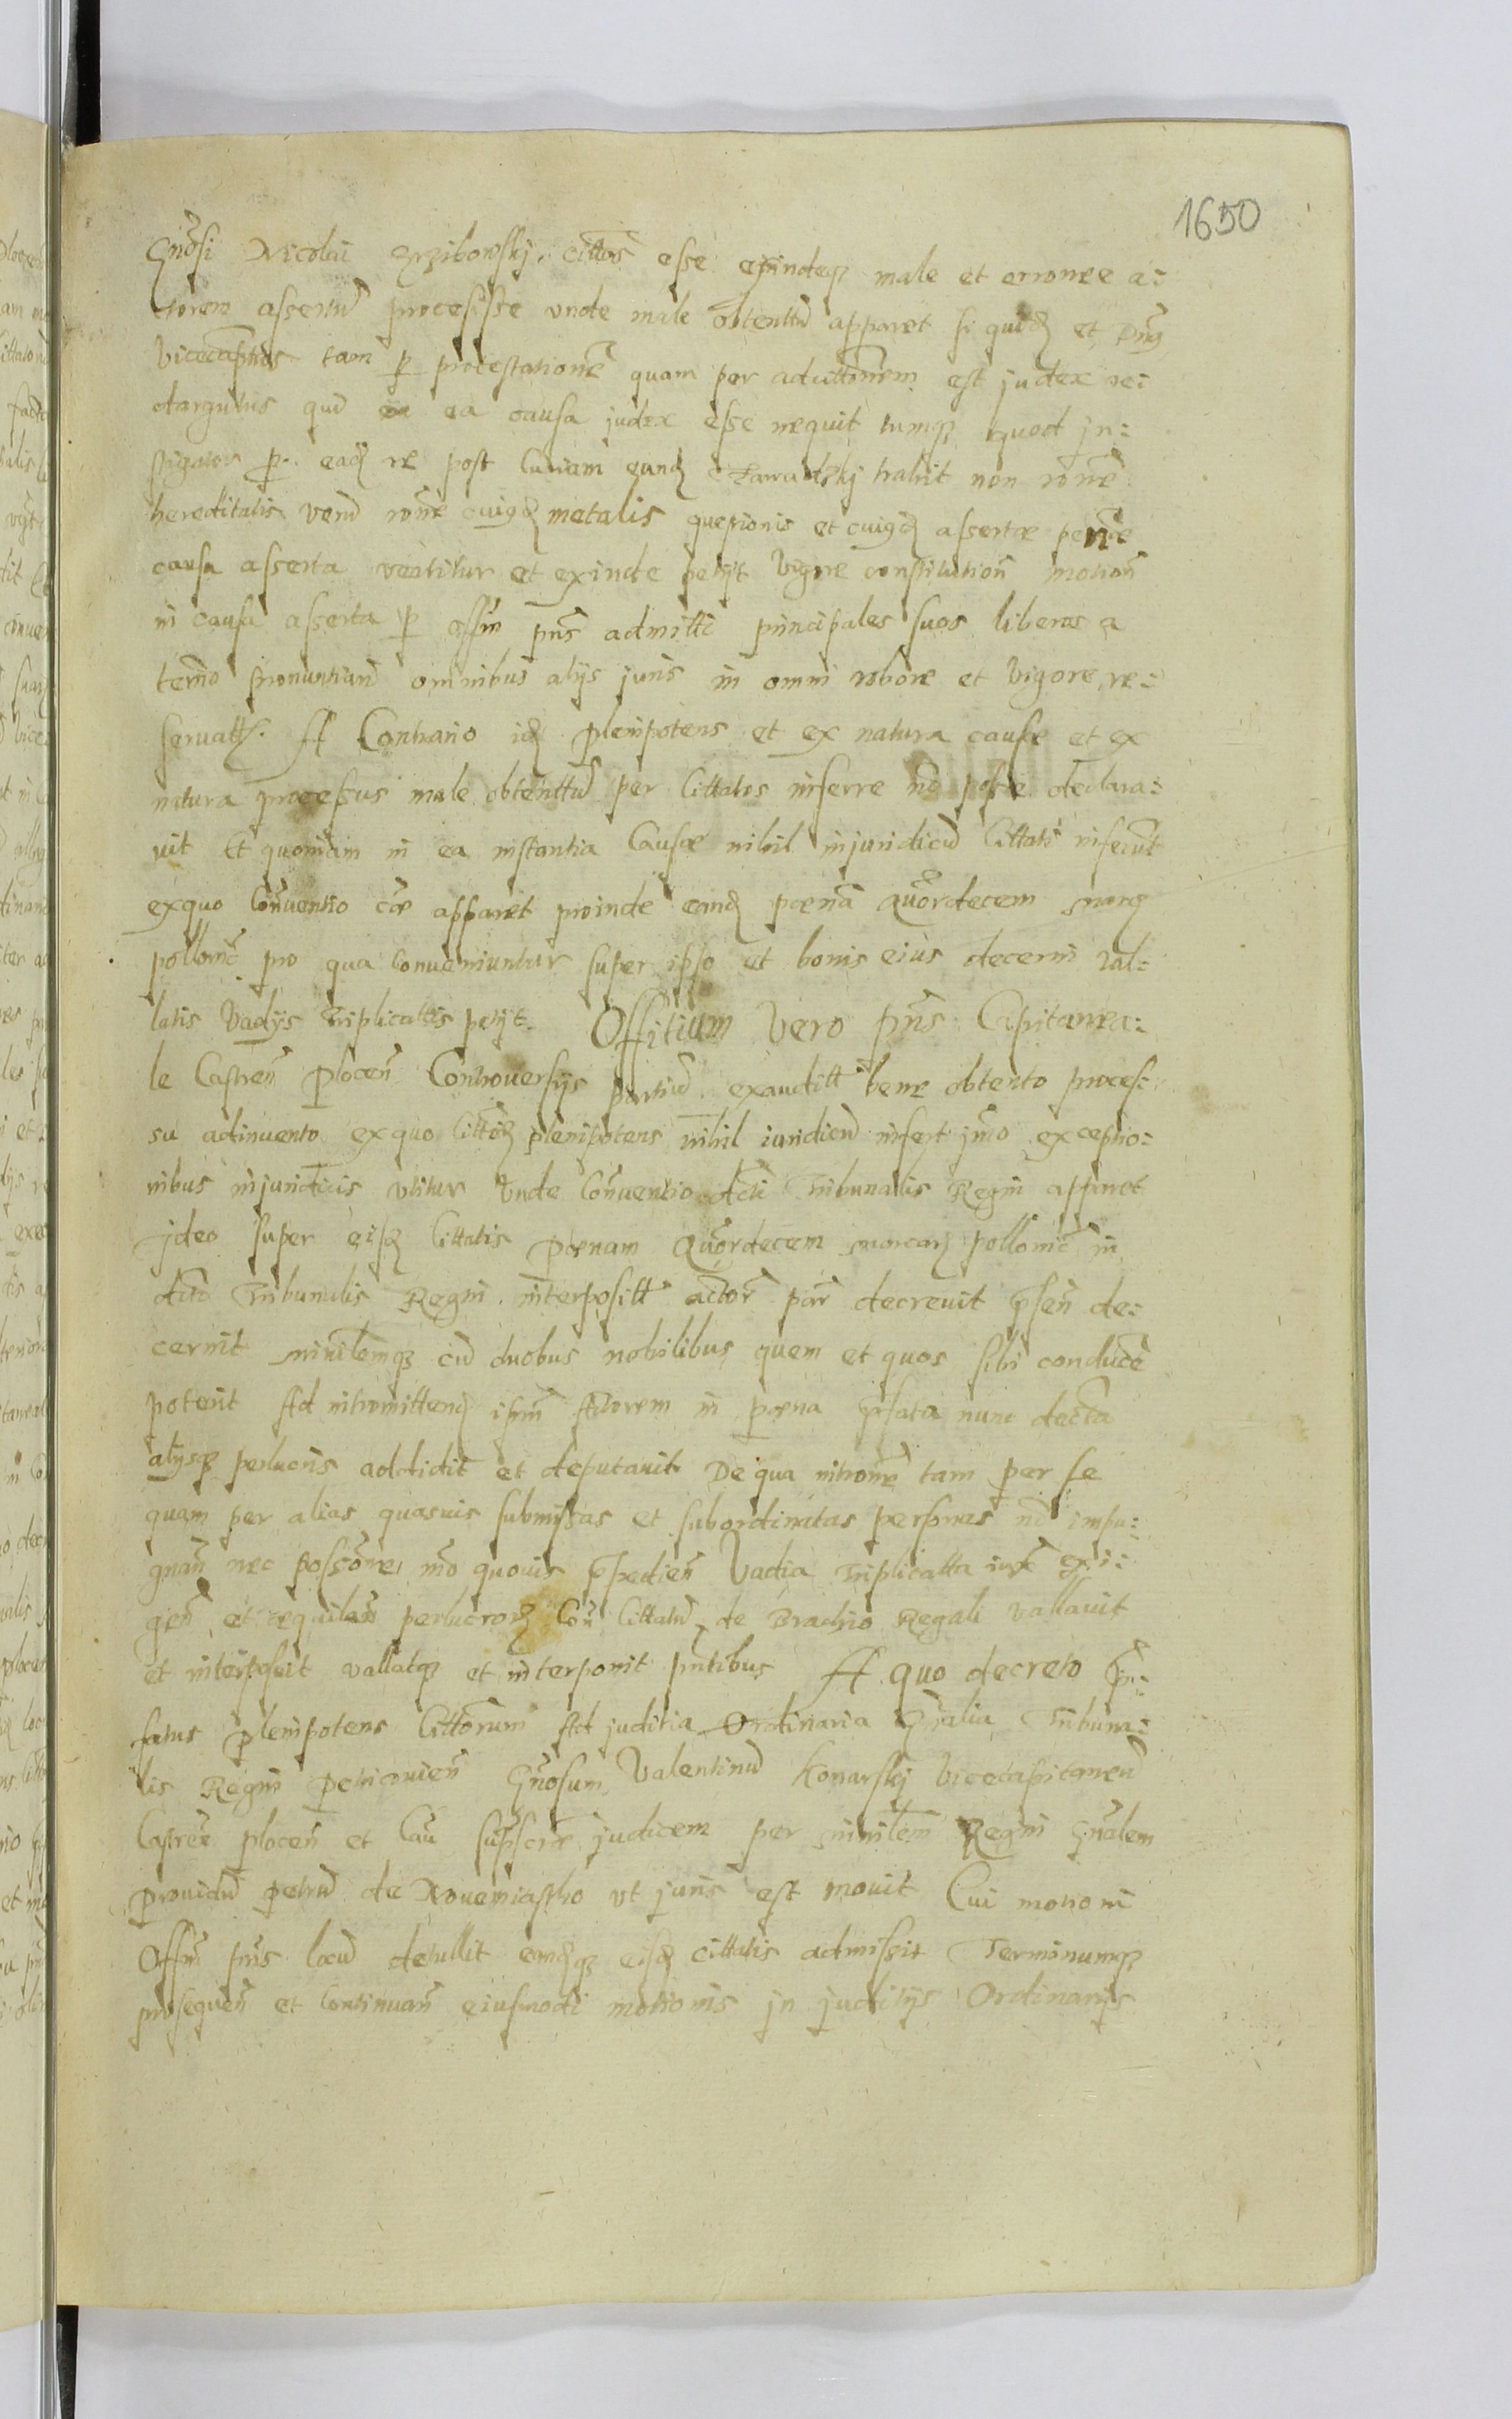 1650
Gnosi Nicolai Grzibowskj cittos esse exindeq male et erronee a:
ctorem assertu processisse unde male obtentu apparet si quide et Dnus
Vicecaptneus tam p protestatione quam per adcittonem est judex re:
dargutus qui in ea causa judex esse nequit tumq quod jn:
stigator pro ead re post Curiam eund Zawadzkj trahit non rone
hereditatis veru rone cuiusd metalis questionis et cuiusd assertae penae
causa asserta vertitur et exinde petijt vigore constitution motion
in causa asserta p offm pns admitti principales suos liberos a
termo pronuntiand omnibus alijs juris in omni robore et vigore re:
servatis. A Contrario id plenipotens et ex natura causae et ex
natura processus male obtenttu per Cittatos inferre no posse declara:
vit Et quoniam in ea instantia Causae nihil injuridicu Cittati inferunt
exquo Conventio apparet proinde eand poena quordecem marcq
pollonic pro qua conveniuntur super ipso et bonis eius decerni val:
latis Vadijs Triplicattis petijt. Offitium Vero pns Capitanea:
le Castren Plocen Controversijs partiu exauditt bene obtento proces:
su adinvento exquo Cittoru plenipotens nihil iuridicu infert jmo exceptio:
nibus injuridicis utitur unde Conventio dcti Tribunalis Regni apparet
jdeo super eisd Cittatis poenam quordecem marcar pollonic in
dcto Tribunalis Regni interpositt actori pari decrevit psen de:
cernit ministlemq cu duobus nobilibus quem et quos sibi conduce
poterit Ad intromittend ipsm Actorem in poena psata nunc decta
alijsq perlucris addidit et deputavit De qua introne tam per se
quam per alias quasvis submissas et subordinatas personas no impu:
gnan nec possone mo quovis Expedien Vadia Triplicatta iux exi:
gen et aequilen perlucroru Con Cittatu de Brachio Regali vallavit
et interposuit vallatq et interponit pntibus A quo decreto p:
fatus plenipotens Cittorum Ad juditia Ordinaria Gnalia Tribuna:
lis Regni petricovien Gnosum Valentinu Konarskj Vicecapitaneu
Castren plocen et Cau supscrae judicem per ministlem Regni Gnalem
providu petru de Noวemiastho ut juris est movit Cui motioni
Offm pns locu detullit eandq eisd cittatis admissit Terminumq
prosequen et Continuan eiusmodi motionis jn juditijs Ordinarijs